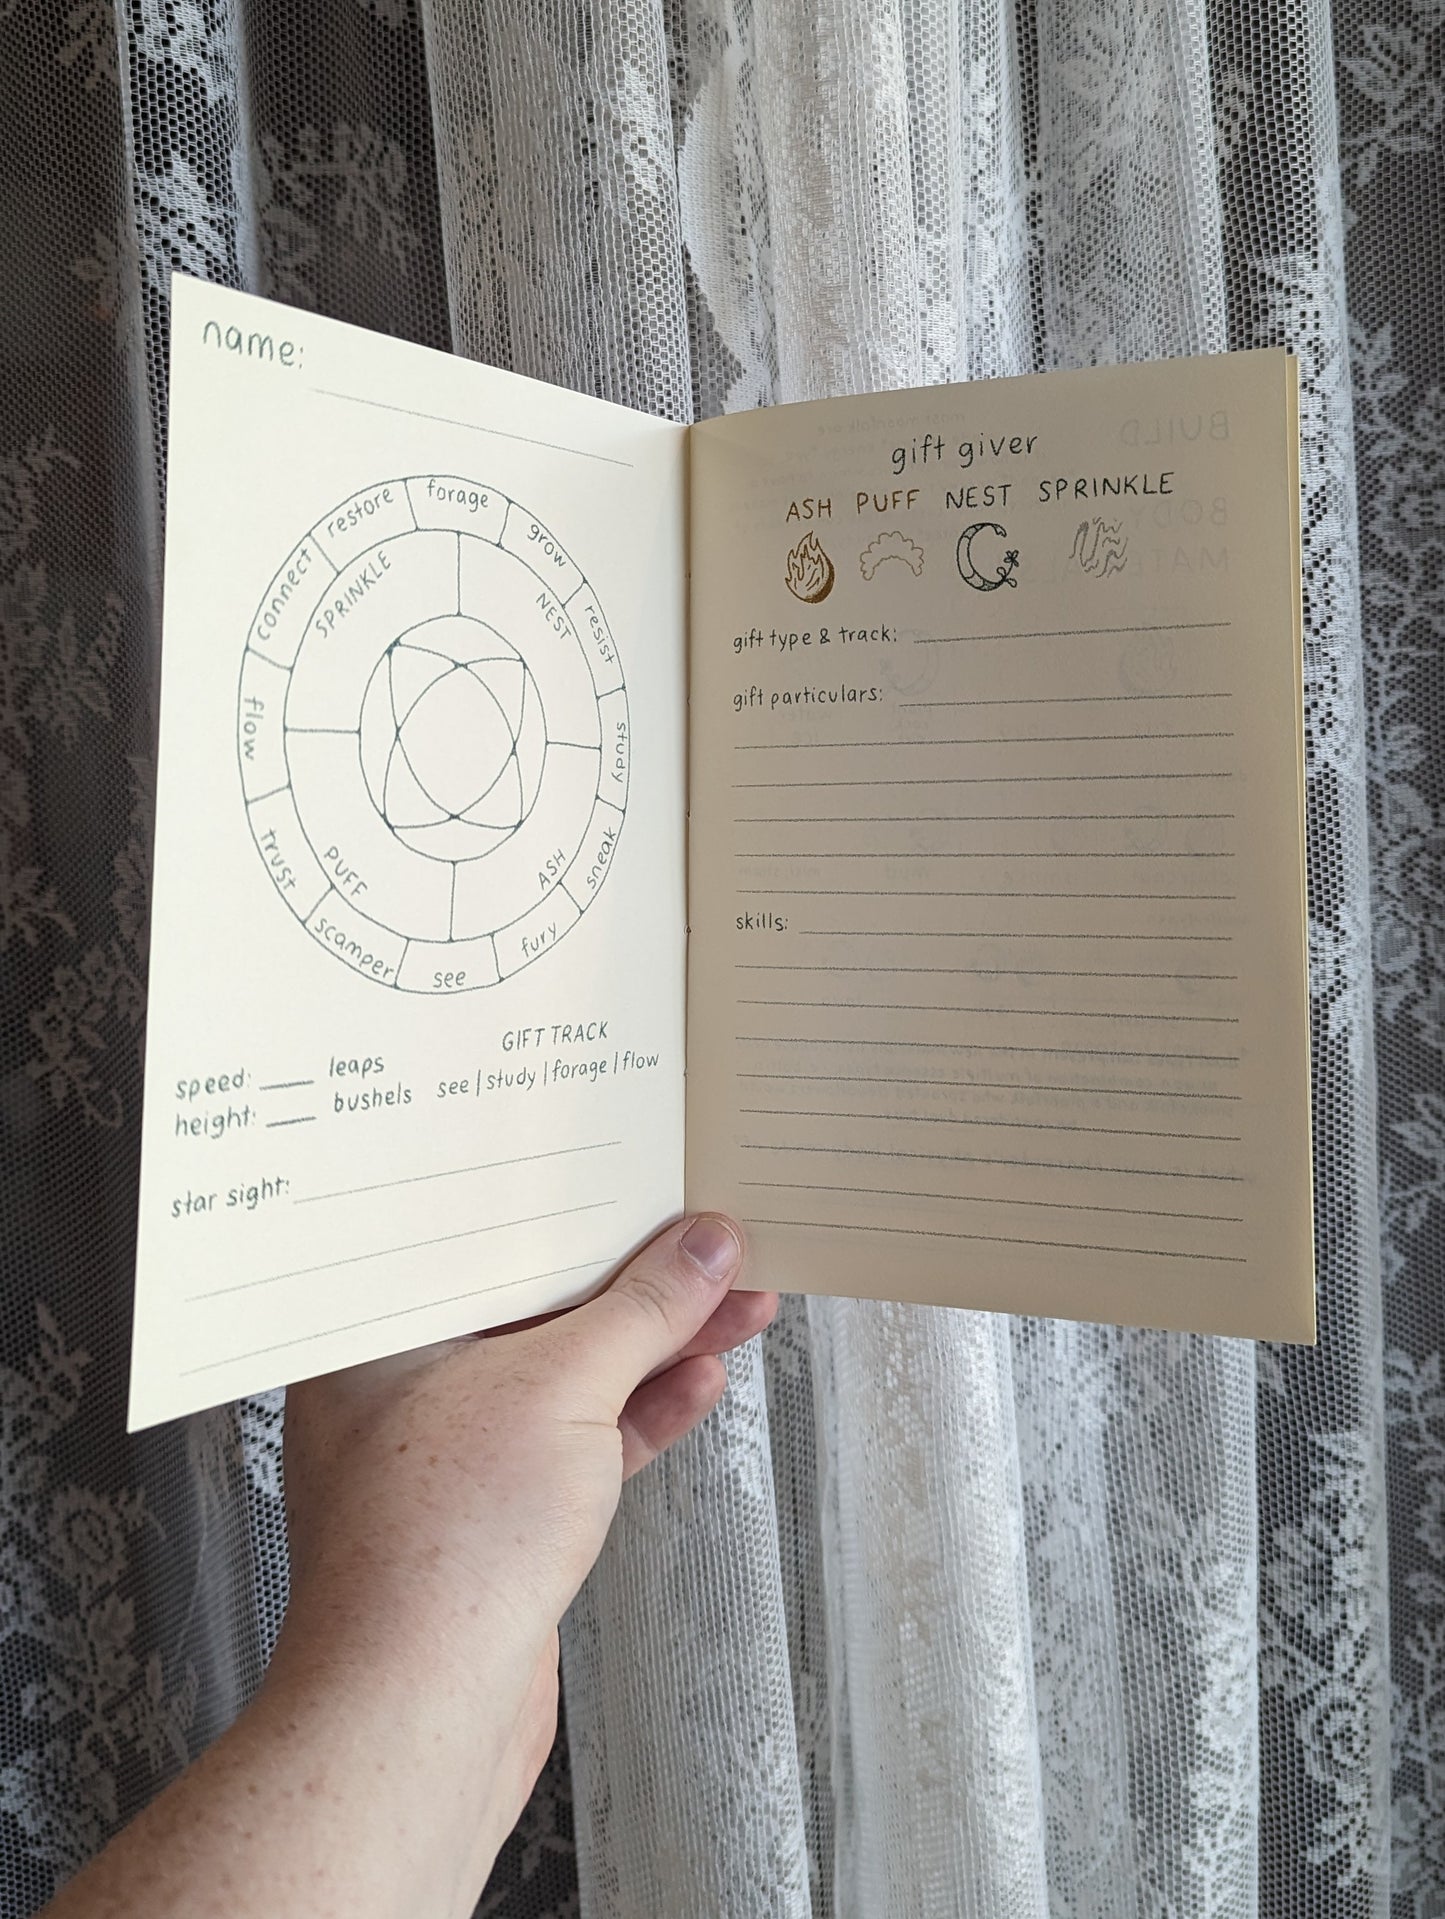 name:
restore
forage
grow
resist
study
sneak
fury
see
scamper
trust
flow
connect
SPRINKLE
NEST
ASH
PUFF
speed: leaps
height: bushels
GIFT TRACK
see | study | forage | flow
star sight:
gift giver
ASH PUFF NEST SPRINKLE
gift type & track:
gift particulars:
skills:
BUILD
BODY